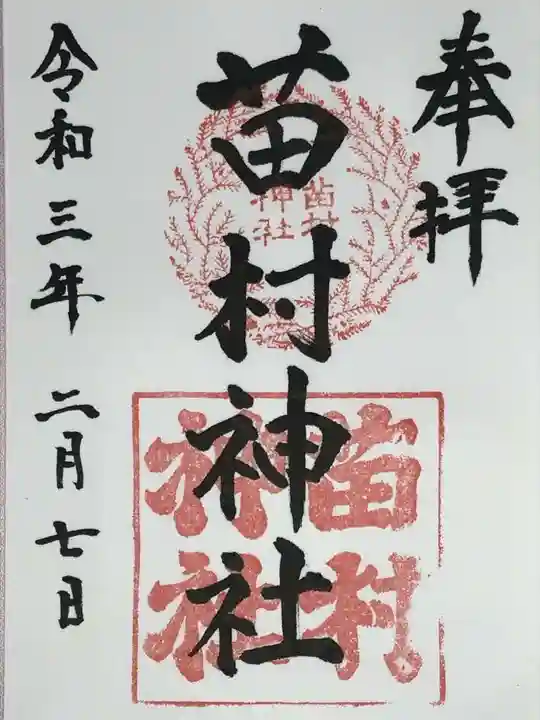 奉拝
苗村神社
苗村
神社
苗村
神社
令和三年二月七日